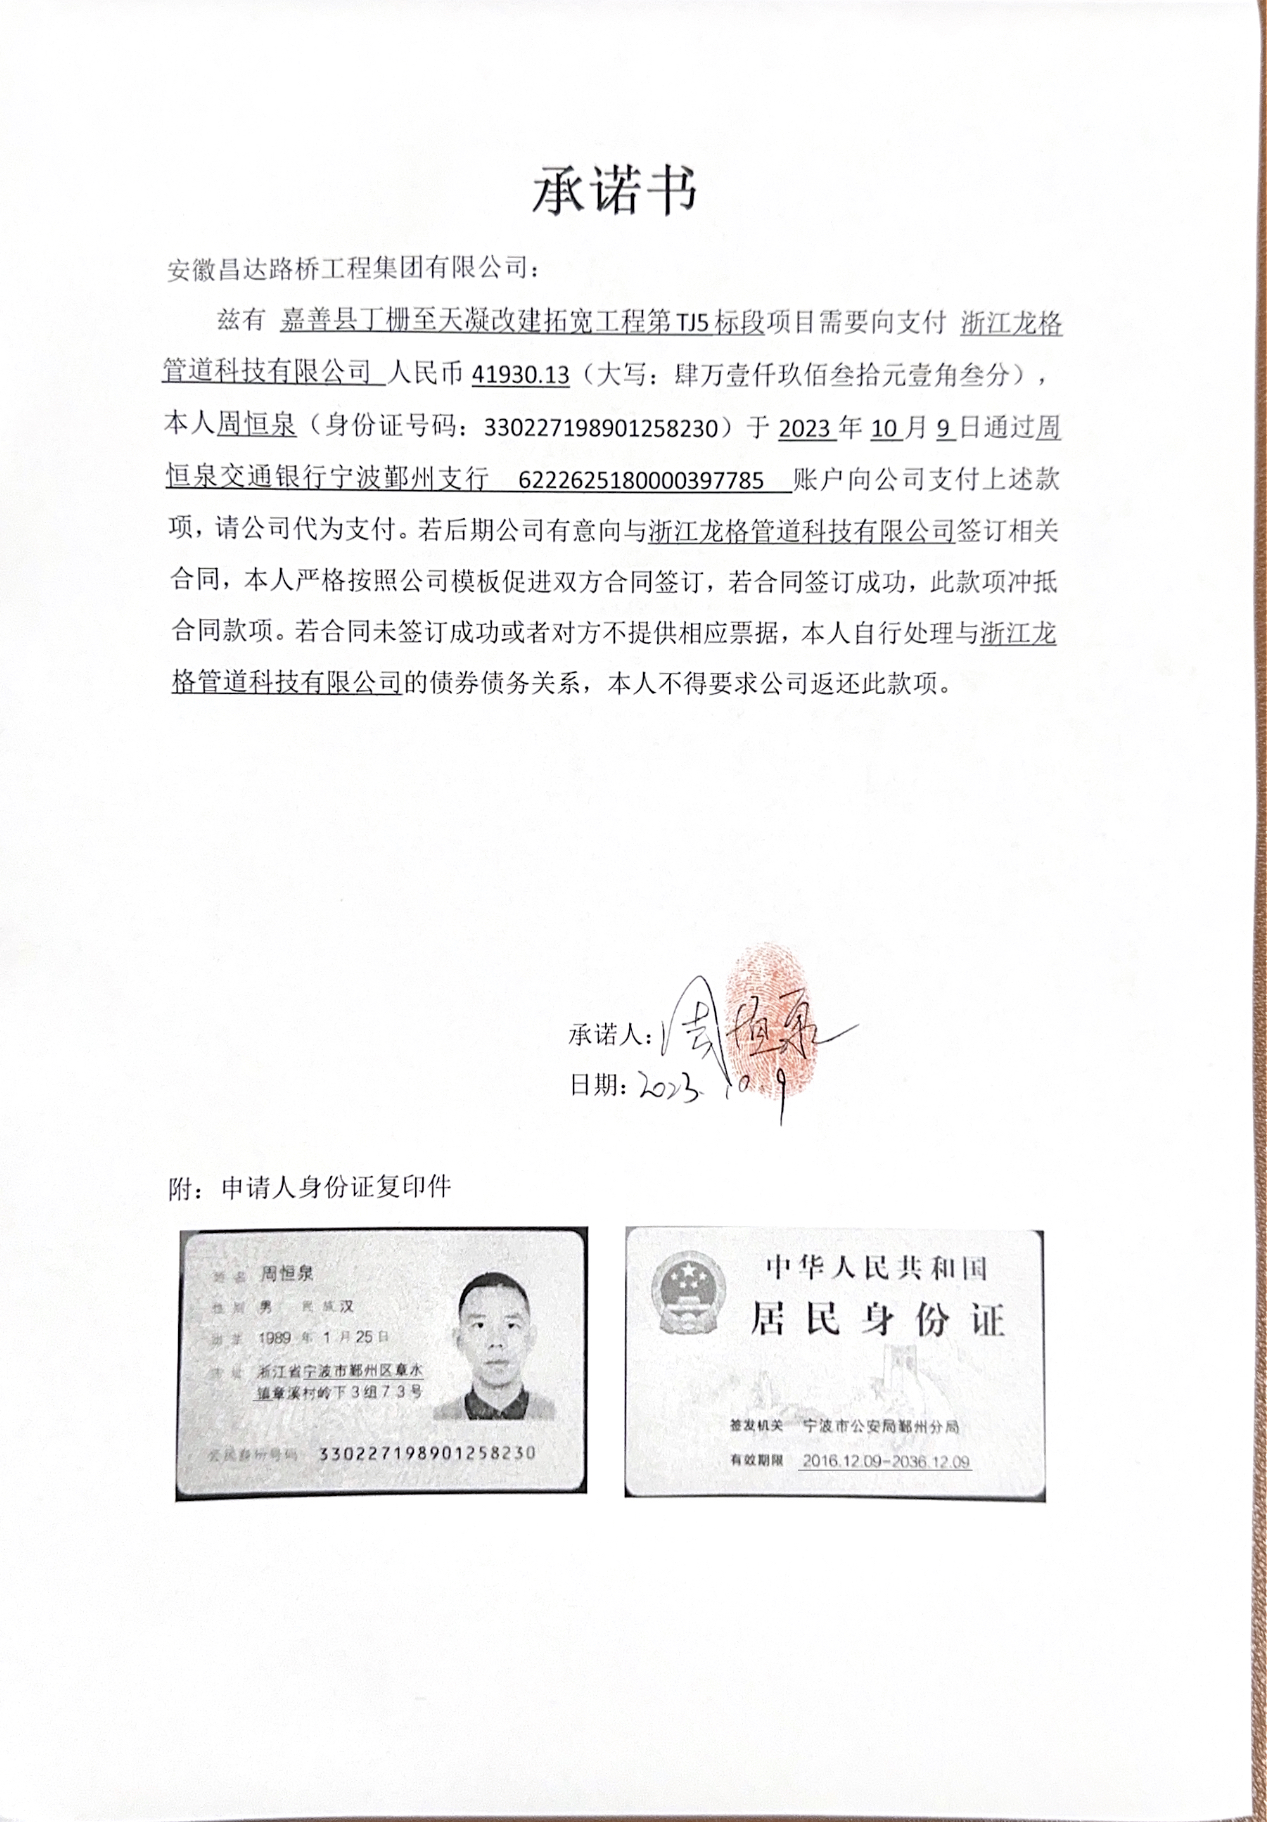 承诺书
安徽昌达路桥工程集团有限公司：
兹有 嘉善县丁栅至天凝改建拓宽工程第TJ5标段项目需要向支付 浙江龙格
管道科技有限公司 人民币 41930.13（大写：肆万壹仟玖佰叁拾元壹角叁分），
本人周恒泉（身份证号码：330227198901258230）于 2023 年 10 月 9 日通过周
恒泉交通银行宁波鄞州支行 6222625180000397785 账户向公司支付上述款
项，请公司代为支付。若后期公司有意向与浙江龙格管道科技有限公司签订相关
合同，本人严格按照公司模板促进双方合同签订，若合同签订成功，此款项冲抵
合同款项。若合同未签订成功或者对方不提供相应票据，本人自行处理与浙江龙
格管道科技有限公司的债券债务关系，本人不得要求公司返还此款项。
承诺人：周恒泉
日期：2023.10.9
附：申请人身份证复印件
姓名 周恒泉
性别 男 民族 汉
出生 1989 年 1 月 25 日
住址 浙江省宁波市鄞州区章水
镇章溪村岭下3组73号
公民身份号码 330227198901258230
中华人民共和国
居民身份证
签发机关 宁波市公安局鄞州分局
有效期限 2016.12.09-2036.12.09